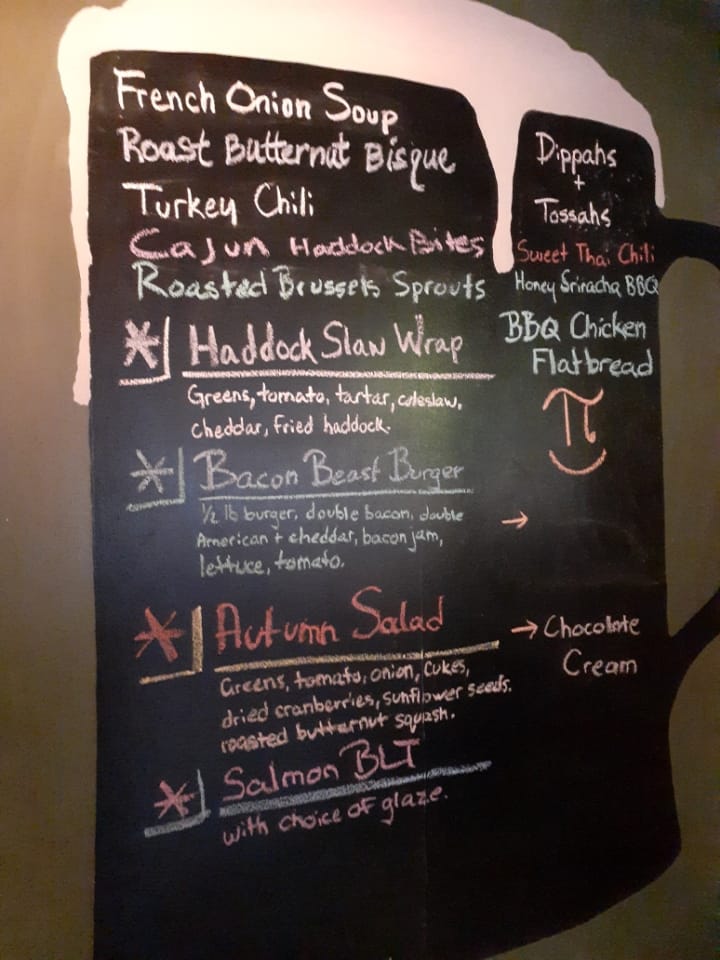 French Onion Soup
Roast Butternut Bisque
Turkey Chili
Cajun Haddock Bites
Roasted Brussels Sprouts
Haddock Slaw Wrap
Greens, tomato, tartar, coleslaw,
cheddar, fried haddock.
Bacon Beast Burger
1/2 lb burger, double bacon, double
American + cheddar, bacon jam,
lettuce, tomato.
Autumn Salad
Greens, tomato, onion, cukes,
dried cranberries, sunflower seeds.
roasted butternut squash.
Salmon BLT
with choice of glaze.
Dippahs
+
Tossahs
Sweet Thai Chili
Honey Sriracha BBQ
BBQ Chicken
Flatbread
π
→
→ Chocolate
Cream